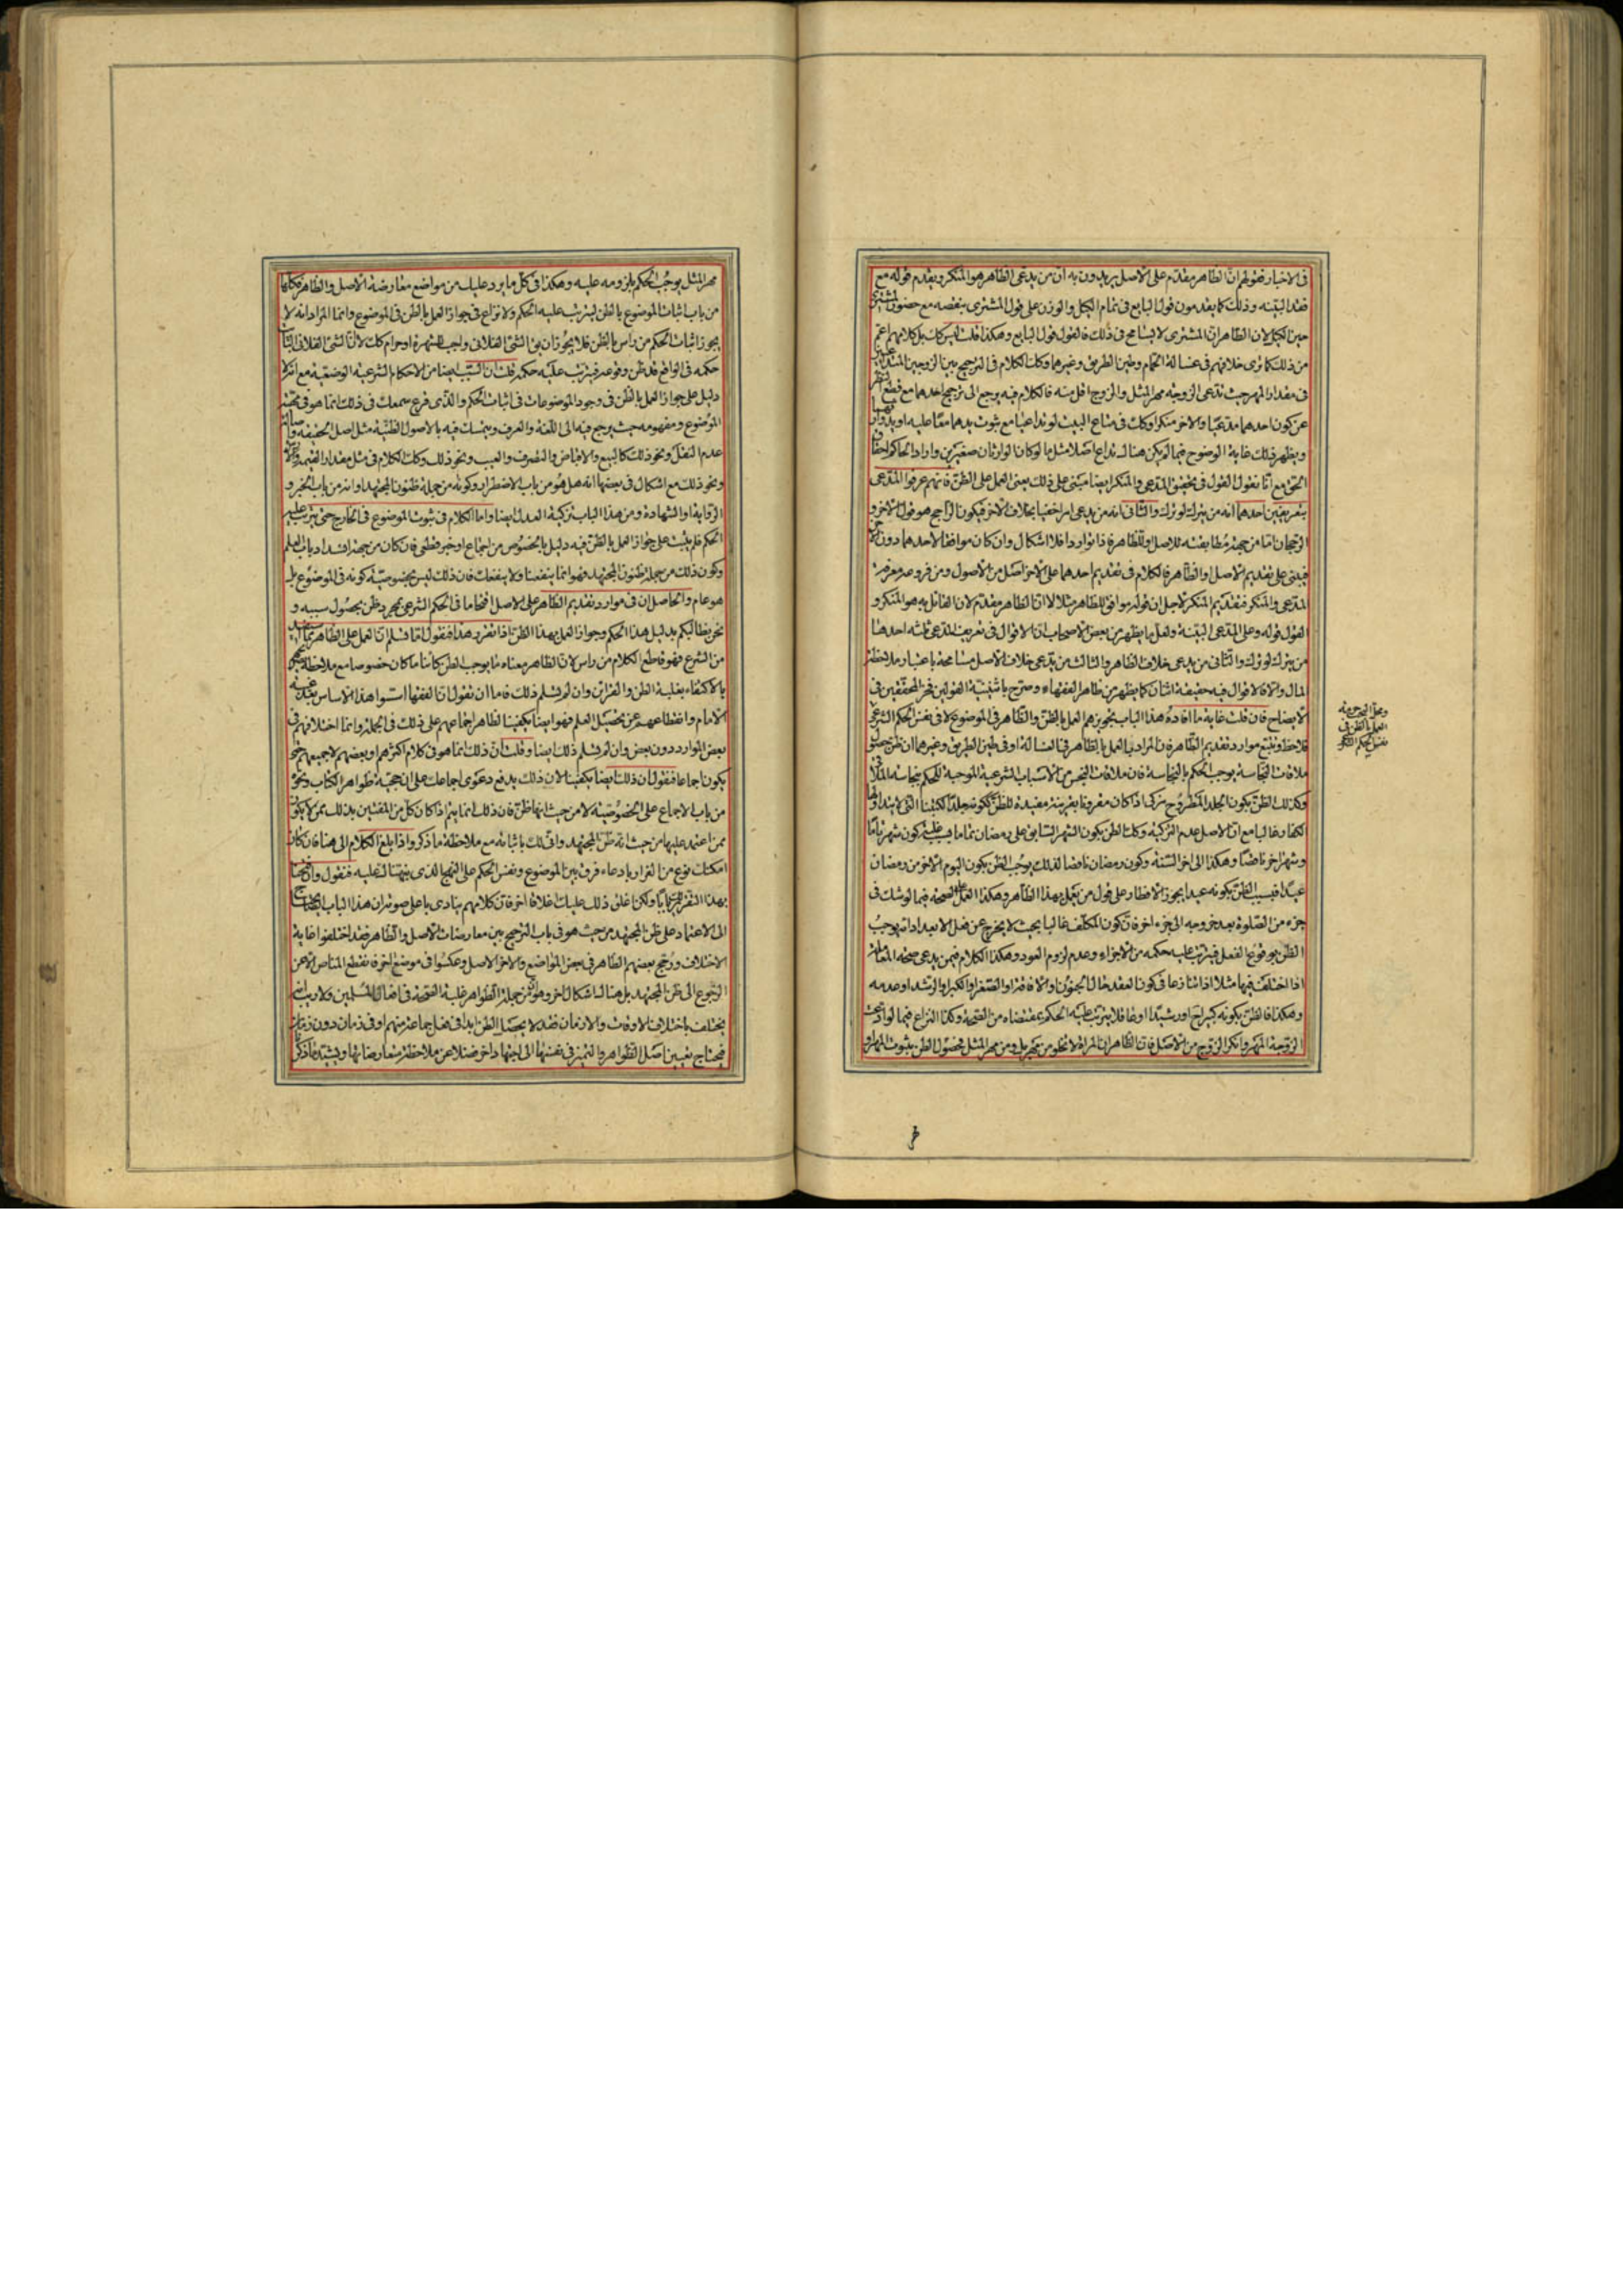 فى الاخبار فقولهم ان الظاهر مقدم على الاصل يريدون به ان من يدعى الظاهر هو المنكر ويقدم قوله مع
فقد البينة وذلك كما يقدمون قول البايع فى تمام الكيل والوزن على قول المشترى بنقصه مع حضور المشترى
حين الكيل لان الظاهر ان المشترى لا يتسامح فى ذلك فالقول قول البايع وهكذا قلت ليس كك بل كلامهم اعم
من ذلك كما ترى خلافهم فى غسالة الحمام وطين الطريق وغيرهما وكك الكلام فى الترجيح بين الزوجين المتداعيين
فى مقدار المهر حيث تدعى الزوجة مهر المثل والزوج اقل منه فالكلام فيه يرجع الى ترجيح احدهما مع قطع النظر
عن كون احدهما مدعيا والاخر منكرا وكك فى متاع البيت لو تداعيا مع ثبوت يدهما معا عليه او يد وارثهما
ويظهر ذلك غاية الوضوح فيما لم يكن هناك تداع اصلا مثل ما لو كانا لوارثان صغيرين واراد الحاكم احقاق
الحق مع انا نقول القول فى تحقيق المدعى والمنكر ايضا مبنى على ذلك يعنى العمل على الظن فانهم عرفوا المدعى
بتعريفين احدهما انه من يترك لو ترك والثانى انه من يدعى امرا خفيا بخلاف الاخر فيكون الراجح هو قول الاخر و
الرجحان اما من جهة مطابقته للاصل وللظاهر فاذا توارد افلا اشكال وان كان موافقا لاحدهما دون الاخر
فيبنى على تقديم الاصل او الظاهر فالكلام فى تقديم احدهما على الاخر اصل من الاصول ومن فروعه معرفة
المدعى والمنكر فتقديم المنكر لاجل ان قوله موافق للظاهر مثلا لا ان الظاهر مقدم لان القائل به هو المنكر و
القول قوله وعلى المدعى البينة ولعل ما يظهر من بعض الاصحاب ان الاقوال فى تعريف المدعى ثلثة احدها
من يترك لو ترك والثانى من يدعى خلاف الظاهر والثالث من يدعى خلاف الاصل مسامحة باعتبار ملاحظة
المال والا فالاقوال فيه حقيقة اثنان كما يظهر من ظاهر الفقهاء وصرح باثنينية القولين فخر المحققين فى
الايضاح فان قلت غاية ما افاده هذا الباب تجويزهم العمل بالظن والظاهر فى الموضوع لا فى نفس الحكم الشرعى
فلاحظ وتتبع موارد تقديم الظاهر فان المراد بالعمل بالظاهر فى الغسالة او فى طين الطريق وغيرهما ان ظن حصول
ملاقات النجاسة يوجب الحكم بالنجاسة فان ملاقات النجس من الاسباب الشرعية الموجبة للحكم بنجاسة الملاقى
وكذلك الظن بكون الجلد المطروح مذكى اذا كان مقرونا بقرينة مفيدة للظن ككونه جلدا لكتبنا التى لا يتداولها
الكفار غالبا مع ان الاصل عدم التزكية وكك الظن بكون الشهر السابق على رمضان تماما بسبب غلبة كون شهر تاما
وشهر اخر ناقصا وهكذا الى اخر السنة وكون رمضان ناقصا لذلك يوجب الظن بكون اليوم الاخر من رمضان
عيدا فبسبب الظن بكونه عيدا يجوز الافطار على قول من يعمل بهذا الظاهر وهكذا العمل على الصحة فيما لو شك فى
جزء من الصلوة بعد خروجه الى جزء اخر فان كون المكلف غالبا بحيث لا يخرج عن فعل الا بعد اداته يوجب
الظن بوقوع الفعل فيترتب عليه حكمه من الاجزاء وعدم لزوم العود وهكذا الكلام فيمن يدعى صحة المعاملة
اذا اختلف فيها مثلا اذا تنازعا فى كون العقد حال الجنون او الافاقة او الصغر او الكبر او الرشد او عدمه
وهكذا فالظن بكونه كبيرا او رشيدا او مفيقا يترتب عليه الحكم بمقتضاه من الصحة وكذا النزاع فيما لو ادعت
الزوجة المهر وانكر الزوج من الاصل فان الظاهر ان المراة لا تخلو من مهر بل ومن مهر المثل فحصول الظن بثبوت المهر او
ومحل الترجيح فيه
العمل بالظن فى
نفس الحكم
مهر المثل يوجب الحكم بلزومه عليه وهكذا فى كل ما يرد عليك من مواضع معارضة الاصل والظاهر فكلها
من باب اثبات الموضوع بالظن ليترتب عليه الحكم ولا نزاع فى جواز العمل بالظن فى الموضوع وانما المراد انه لا
يجوز اثبات الحكم من راس بالظن فلا يجوز ان يق الشئ الفلانى واجب للشهرة او حرام كك لا ان الشئ الفلانى الثابت
حكمه فى الواقع قد ظن وقوعه فيترتب عليه حكمه قلت ان السبب ايضا من الاحكام الشرعية الوضعية مع انه لا
دليل على جواز العمل بالظن فى وجود الموضوعات فى اثبات الحكم والذى قرع سمعك فى ذلك انما هو فى مهية
الموضوع ومفهومه حيث يرجع فيه الى اللغة والعرف ويتمسك فيه بالاصول الظنية مثل اصل الحقيقة واصالة
عدم النقل ونحو ذلك كالبيع والاقباض والتصرف والعيب ونحو ذلك وكك الكلام فى مثل مقدار القيمة
ونحو ذلك مع اشكال فى بعضها انه هل هو من باب الاضطرار وكونه من جملة ظنون المجتهد او انه من باب الخبر و
الرواية او الشهادة ومن هذا الباب تزكية العدل ايضا واما الكلام فى ثبوت الموضوع فى الخارج حتى يترتب عليه
الحكم فلم يثبت على جواز العمل بالظن فيه دليل بالخصوص من اجماع او خبر قطعى فان كان من جهة انسداد باب العلم
وكون ذلك من جملة ظنون المجتهد فهو انما ينفعنا ولا ينفعك فان ذلك ليس بخصوصية كونه فى الموضوع بل
هو عام والحاصل ان فى موارد تقديم الظاهر على الاصل اقحاما فى الحكم الشرعى بمجرد ظن بحصول سببه و
نحن نطالبكم بدليل هذا الحكم وجواز العمل بهذا الظن اذا تقرر هذا فنقول اما نسلم ان العمل على الظاهر مما
من الشرع فهو قاطع الكلام من راس لان الظاهر معناه ما يوجب الظن كائنا ما كان خصوصا مع ملاحظة
بالاكتفاء بغلبة الظن والقرائن وان لم نسلم ذلك فاما ان نقول ان الفقهاء اسسوا هذا الاساس بعد غيبة
الامام وانقطاعهم عن تحصيل العلم فهو ايضا يكفينا لظاهر اجماعهم على ذلك فى الجملة وانما اختلافهم فى
بعض الموارد دون بعض وان لم نسلم ذلك ايضا وقلت ان ذلك انما هو فى كلام اكثرهم او بعضهم لا جميعهم حتى
يكون اجماعا فنقول ان ذلك ايضا يكفينا لان ذلك يدفع دعوى اجماعك على ان حجية ظواهر الكتاب ونحوه
من باب الاجماع على الخصوصية لا من حيث انها ظن فان ذلك انما يتم اذا كان كل من المفتين بذلك ممن لا يكون
ممن اعتمد عليها من حيث انه ظن المجتهد وانى لك باثباته مع ملاحظة ما ذكر واذا بلغ الكلام الى هنا فان كان
امكنك نوع من الفرار بادعاء فرق بين الموضوع ونفس الحكم على النهج الذى بينها لك عليه فنقول
بهذا التقرير ولكنا نغلق ذلك عليك اغلاقا اخر فان كلامهم ينادى باعلى صوته ان هذا الباب
الى الاعتماد على ظن المجتهد من حيث هو فى باب الترجيح بين معارضات الاصل والظاهر فقد اختلفوا غاية
الاختلاف ورجح بعضهم الظاهر فى بعض المواضع والاخر الاصل وعكسوا فى موضع اخر فانقطع المناص الا عن
الرجوع الى ظن المجتهد بل هنا لك اشكال اخر وهو ان من جملة الظواهر غلبة الصحة فى افعال المسلمين ولا ريب انه
يختلف باختلاف الاوقات والازمان فقد لا يحصل الظن ابدا فى فعل جماعة منهم او فى زمان دون زمان
فيحتاج تعيين اصل الظواهر والتميز فى نفسها الى اجتهاد اخر فضلا عن ملاحظة معارضاتها ويشبه ما ذكرنا